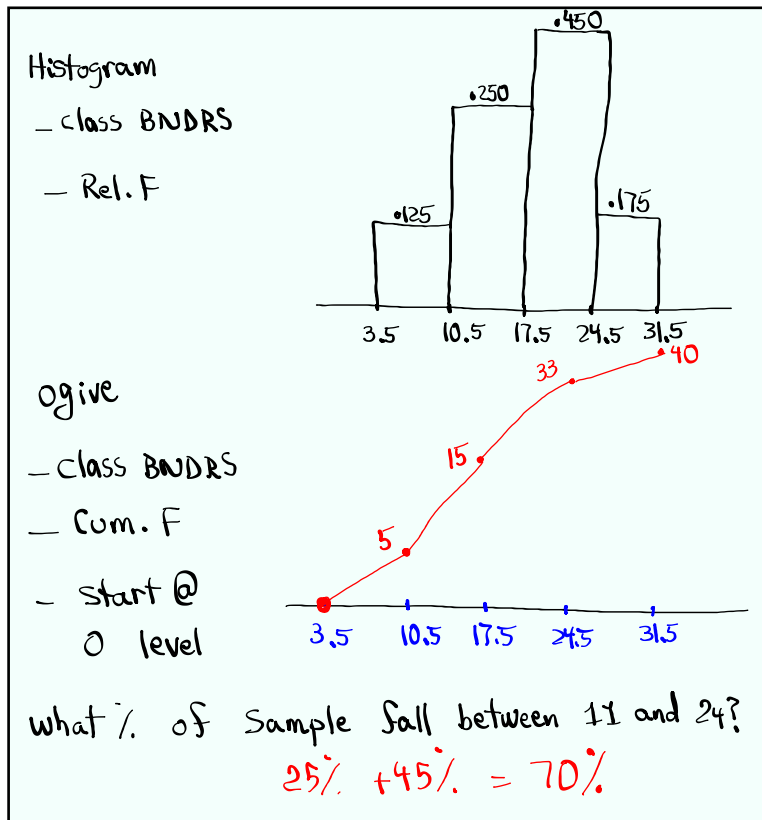 Histogram
- class BNDRS
- Rel. F
.125
.250
.450
.175
3.5 10.5 17.5 24.5 31.5
Ogive
- class BNDRS
- Cum. F
- start @
0 level
5
15
33
40
3.5 10.5 17.5 24.5 31.5
what % of Sample fall between 11 and 24?
25% + 45% = 70%